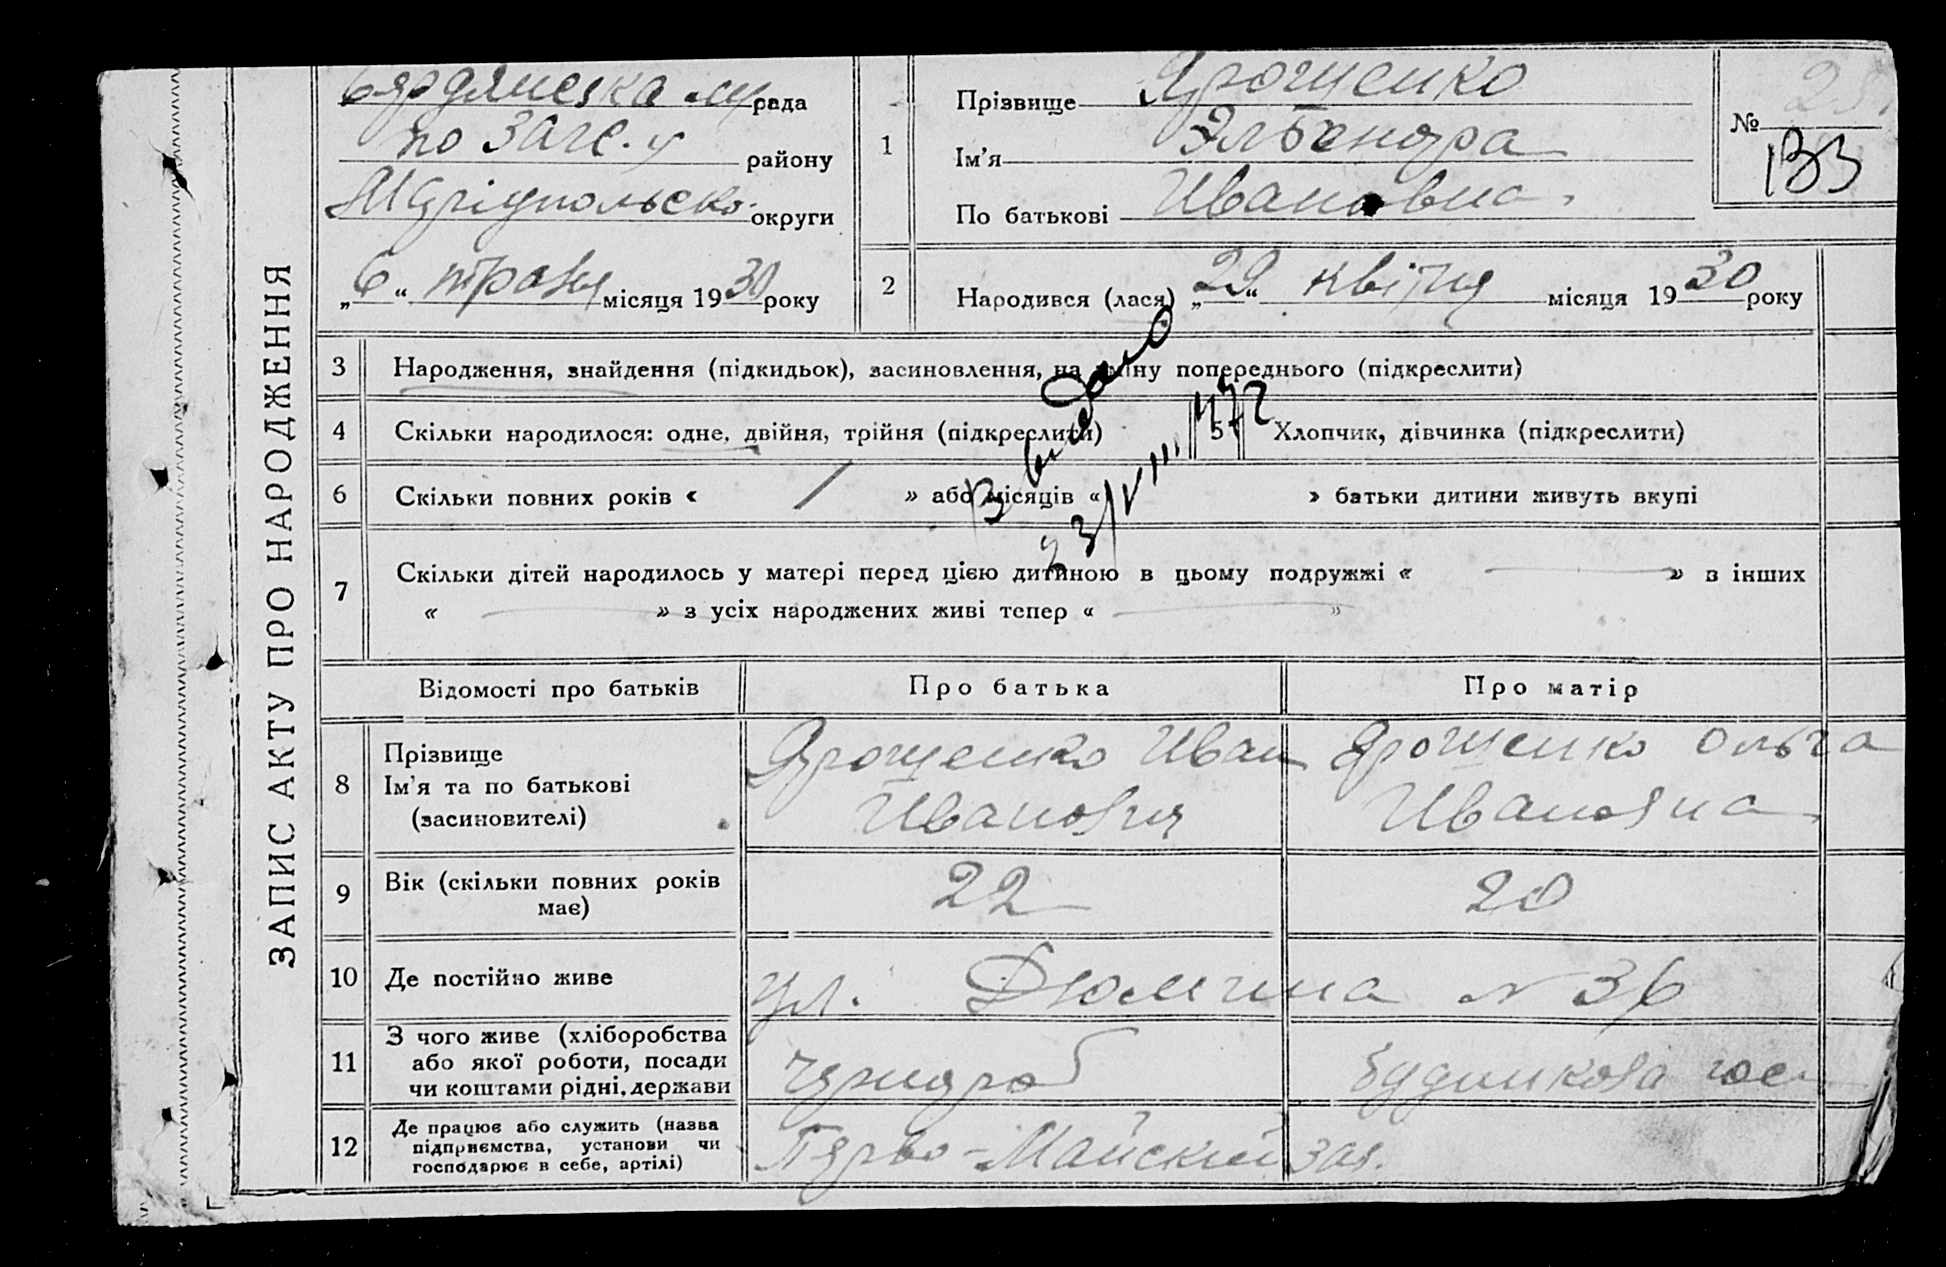 ЗАПИС АКТУ ПРО НАРОДЖЕННЯ
Бярдянська рада
по загс.у району
Мяріупольсько. округи
„6“ травня місяця 1930 року
1
Прізвище Ярошенко
Ім'я
По батькові Ивановна.
№
133
2
Народився (лася) „29“ квітня місяця 1930 року
3 Народження, знайдення (підкидьок), засиновлення, на зміну попереднього (підкреслити)
4 Скільки народилося: одне, двійня, трійня (підкреслити) 5 Хлопчик, дівчинка (підкреслити)
6 Скільки повних років « / » або місяців « » батьки дитини живуть вкупі
7 Скільки дітей народилось у матері перед цією дитиною в цьому подружжі « — » в інших
« — » з усіх народжених живі тепер « — »
23/VIII
Відомості про батьків Про батька Про матір
8 Прізвище
Ім'я та по батькові
(засиновителі)
Ярошенко Иван
Ивановия
Ярошенко Ольга
Ивановна
9 Вік (скільки повних років
має)
22 20
10 Де постійно живе ул. Дюмина № 36
11 З чого живе (хліборобства
або якої роботи, посади
чи коштами рідні, держави
чярнороб
будинкова гос
12 Де працює або служить (назва
підприємства, установи чи
господарює в себе, артілі)
Пярво-Майский зав.